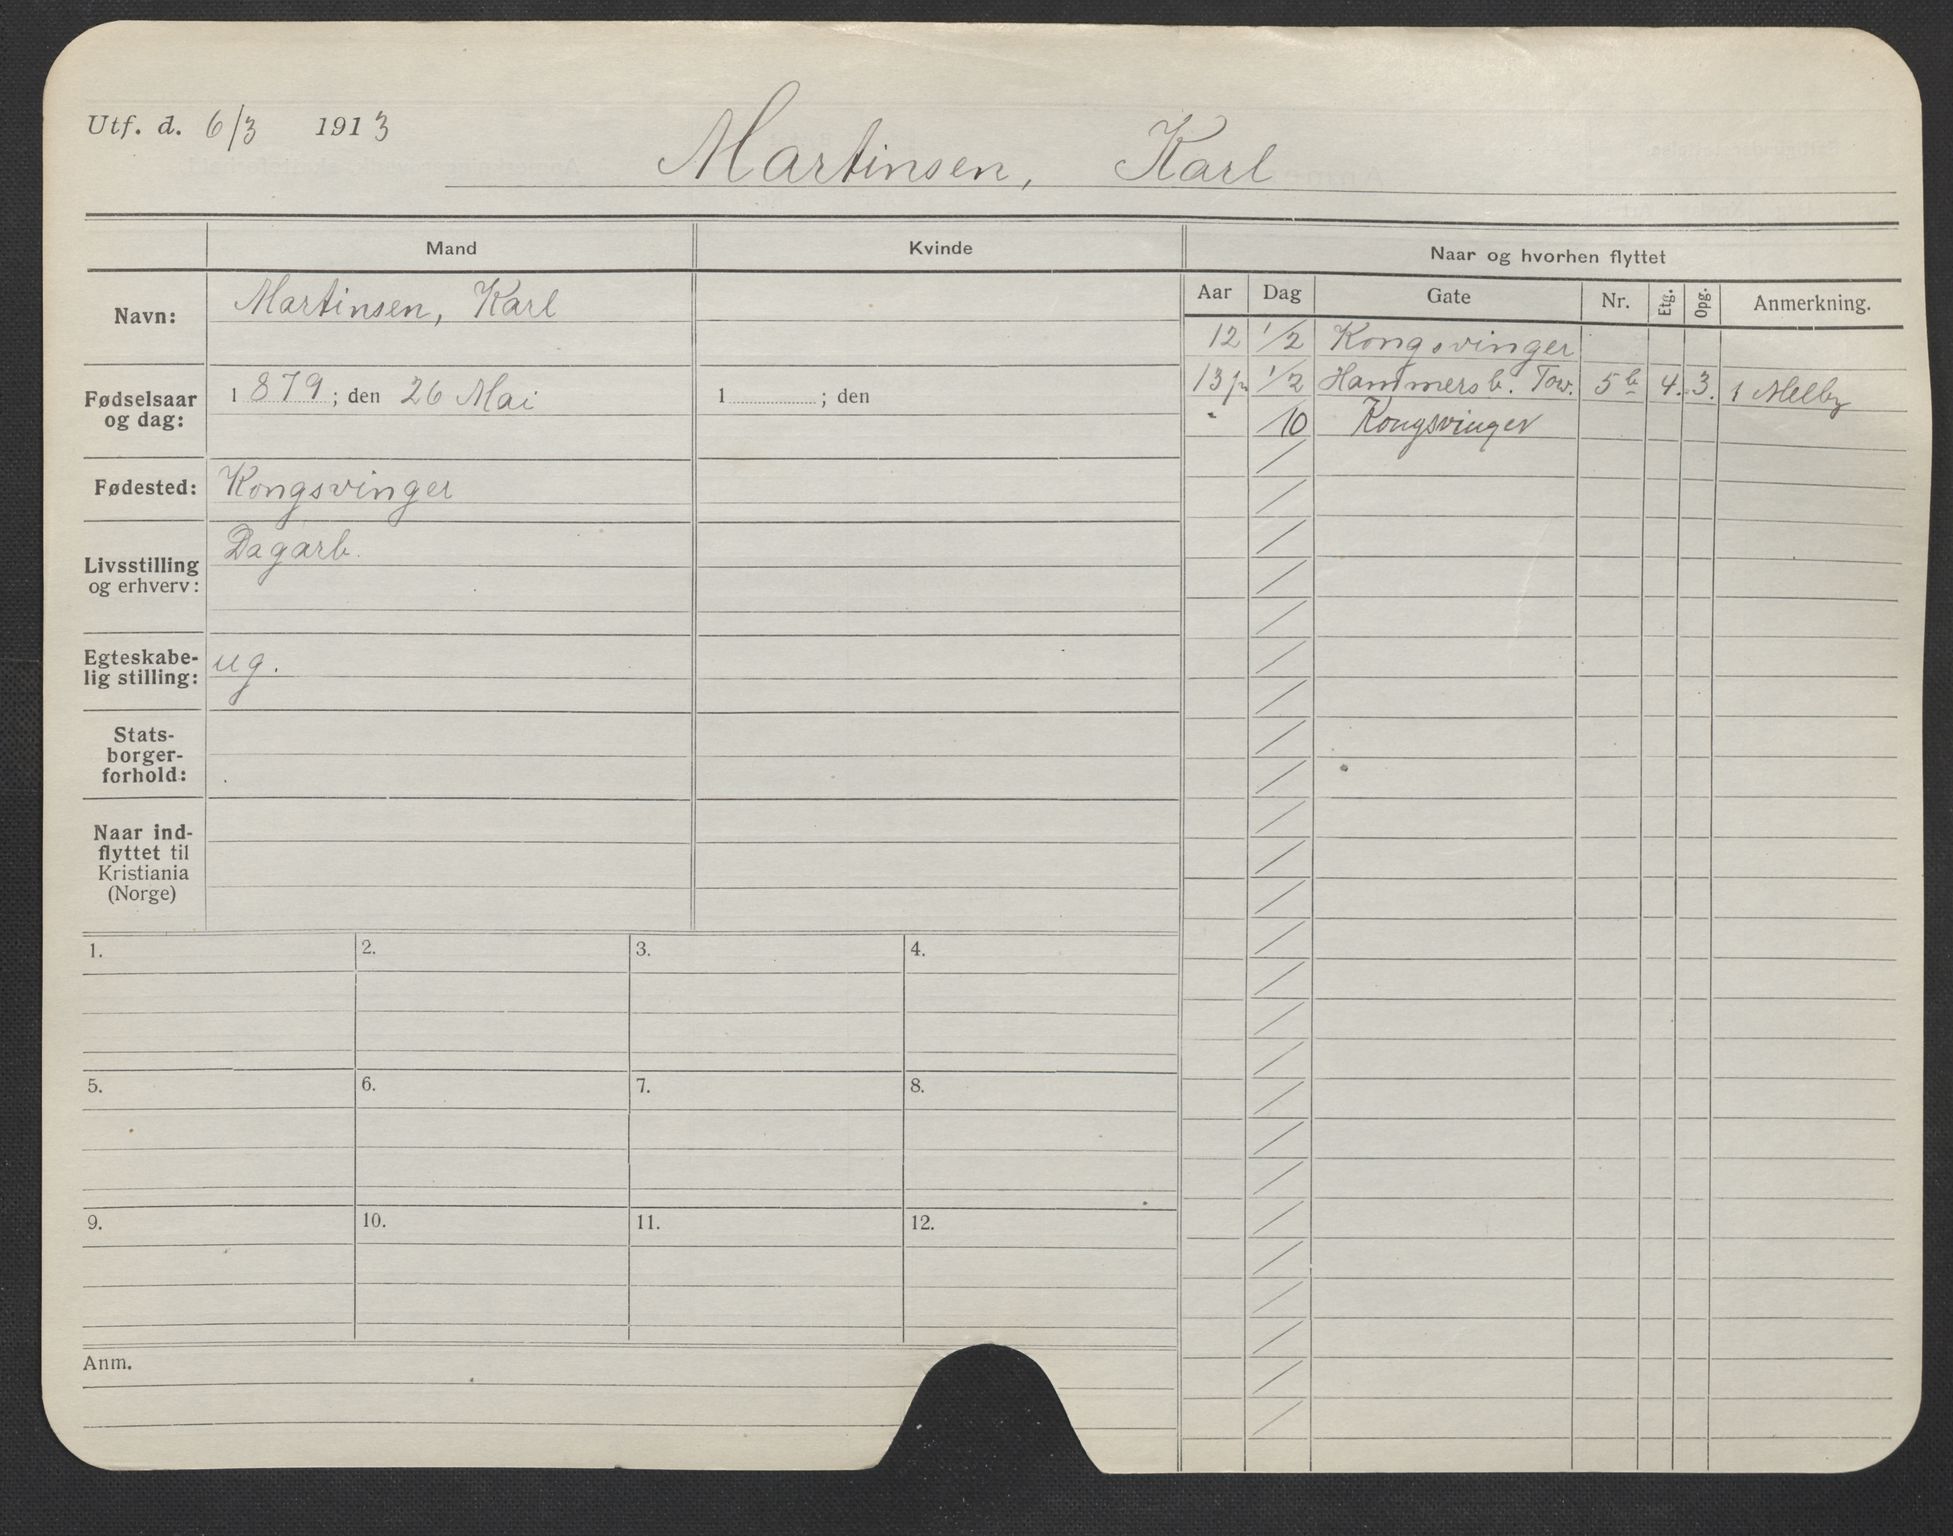 Utf. d. 6/3 1913
Martinsen, Karl
Mand Kvinde Naar og hvorhen flyttet
Aar Dag Gate Nr. Etg. Opg. Anmerkning.
Navn: Martinsen, Karl
Fødselsaar og dag: 1879; den 26 Mai 1 ; den
Fødested: Kongsvinger
Livsstilling og erhverv: Dagarb.
Egteskabe-
lig stilling: ug.
Stats-
borger-
forhold:
Naar ind-
flyttet til
Kristiania
(Norge)
12 1/2 Kongsvinger
13 1/2 Hammersb. 5b 4. 3. Melby
" /10 Kongsvinger
1. 2. 3. 4.
5. 6. 7. 8.
9. 10. 11. 12.
Anm.